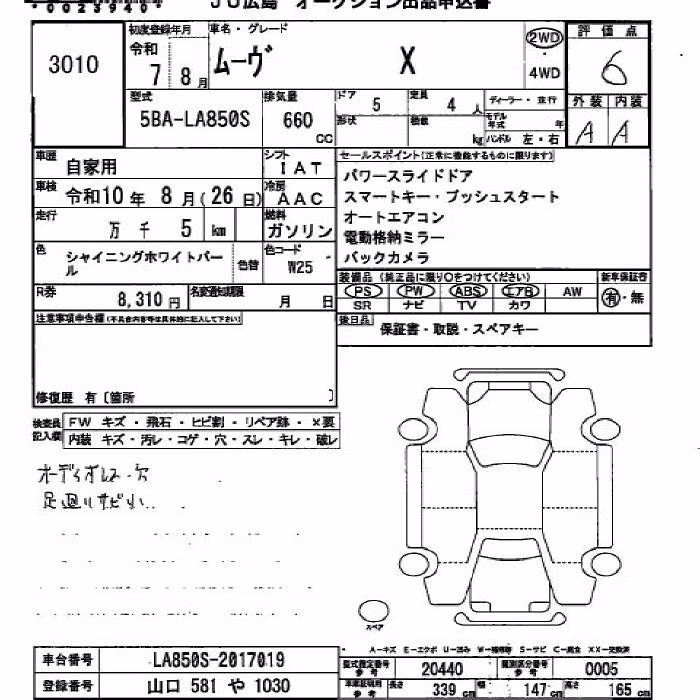 0023940
JU広島 オークション出品申込書
3010
初度登録年月
令和 7 8 月
車名・グレード
ムーヴ X
2WD
4WD
評価点
6
型式
5BA-LA850S
排気量
660 cc
ドア 5
定員 4 人
形状
積載 kg
ディーラー・並行
モデル年式 年
ハンドル 左・右
外装 内装
A A
車歴 自家用
シフト IAT
車検 令和10年 8月(26日)
冷房 AAC
走行 万 千 5 km
燃料 ガソリン
色 シャイニングホワイトパール
色替
色コード W25
R券 8,310 円
名変通知期限 月 日
セールスポイント(正常に機能するものに限ります)
パワースライドドア
スマートキー・プッシュスタート
オートエアコン
電動格納ミラー
バックカメラ
装備品 (純正品に限り○をつけてください)
新車保証書
PS PW ABS エアB AW
有・無
SR ナビ TV カワ
後日品 保証書・取説・スペアキー
注意事項申告欄(不具合内容等は具体的に記入して下さい)
修復歴 有〔箇所 〕
検査員記入欄
FW キズ・飛石・ヒビ割・リペア跡・×要
内装 キズ・汚レ・コゲ・穴・スレ・キレ・破レ
オーディオレス・欠
足廻りサビ小
スペア
A-キズ E-エクボ U-凹み W-補修跡 S-サビ C-腐食 XX-交換済
車台番号 LA850S-2017019
登録番号 山口 581 や 1030
型式指定番号 参考 20440
類別区分番号 参考 0005
車庫証明用 参考 長さ 339 cm 幅 147 cm 高さ 165 cm